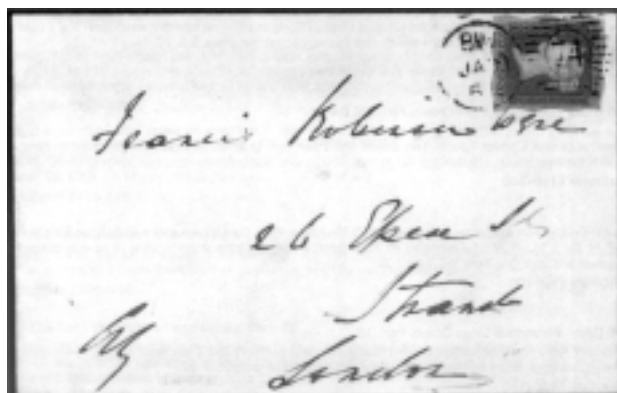 Francis Robinson Esqre
26 Essex St
Strand
London